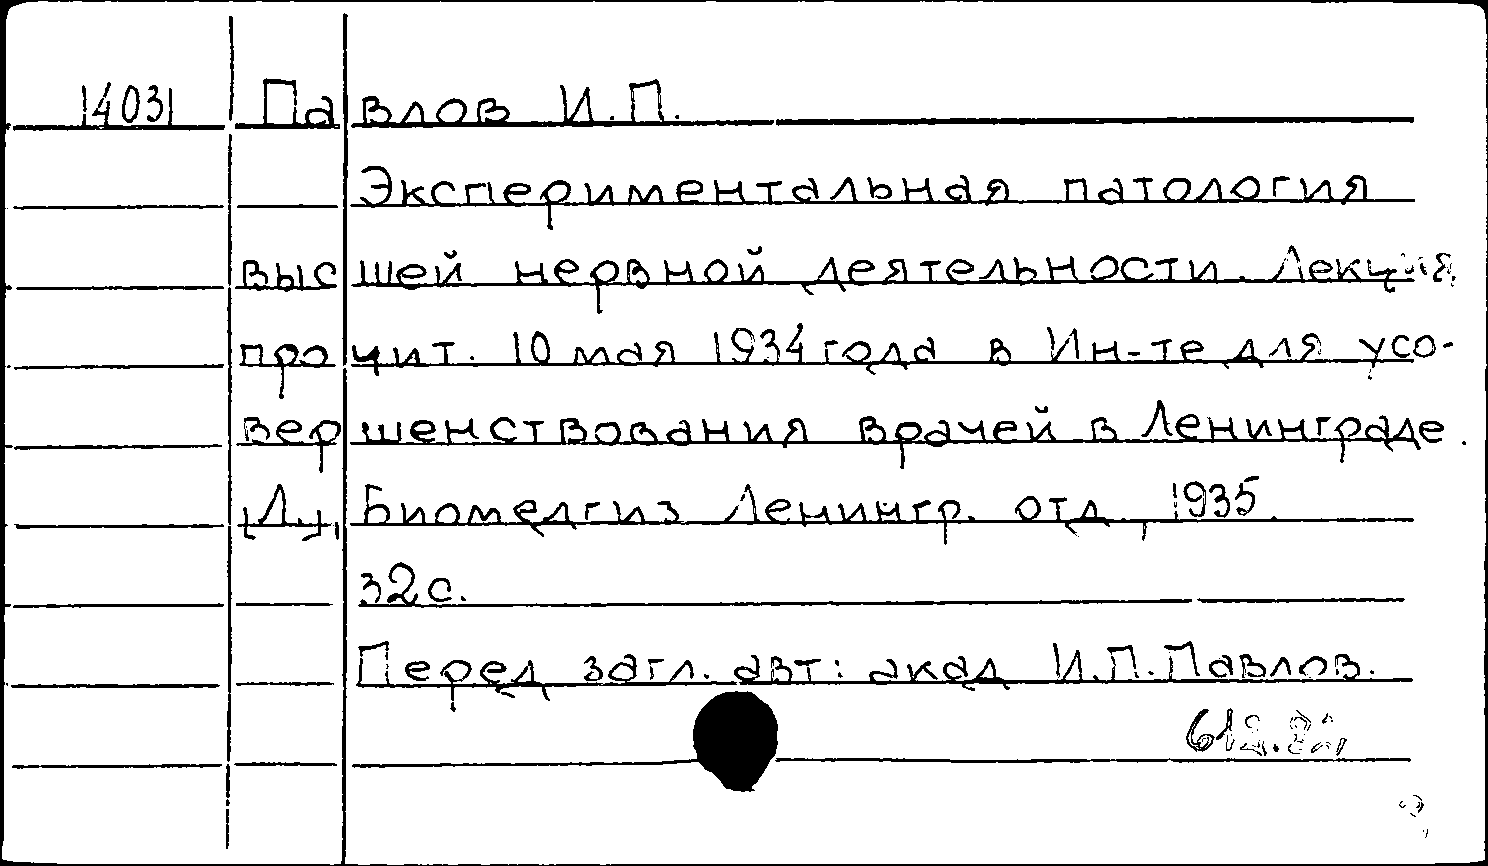 14031 Павлов И.П.
Экспериментальная патология
высшей нервной деятельности. Лекция,
прочит. 10 мая 1934 года в Ин-те для усо-
вершенствования врачей в Ленинграде.
[Л.], Биомедгиз Ленингр. отд, 1935.
32 с.
Перед загл. авт: акад И.П. Павлов.